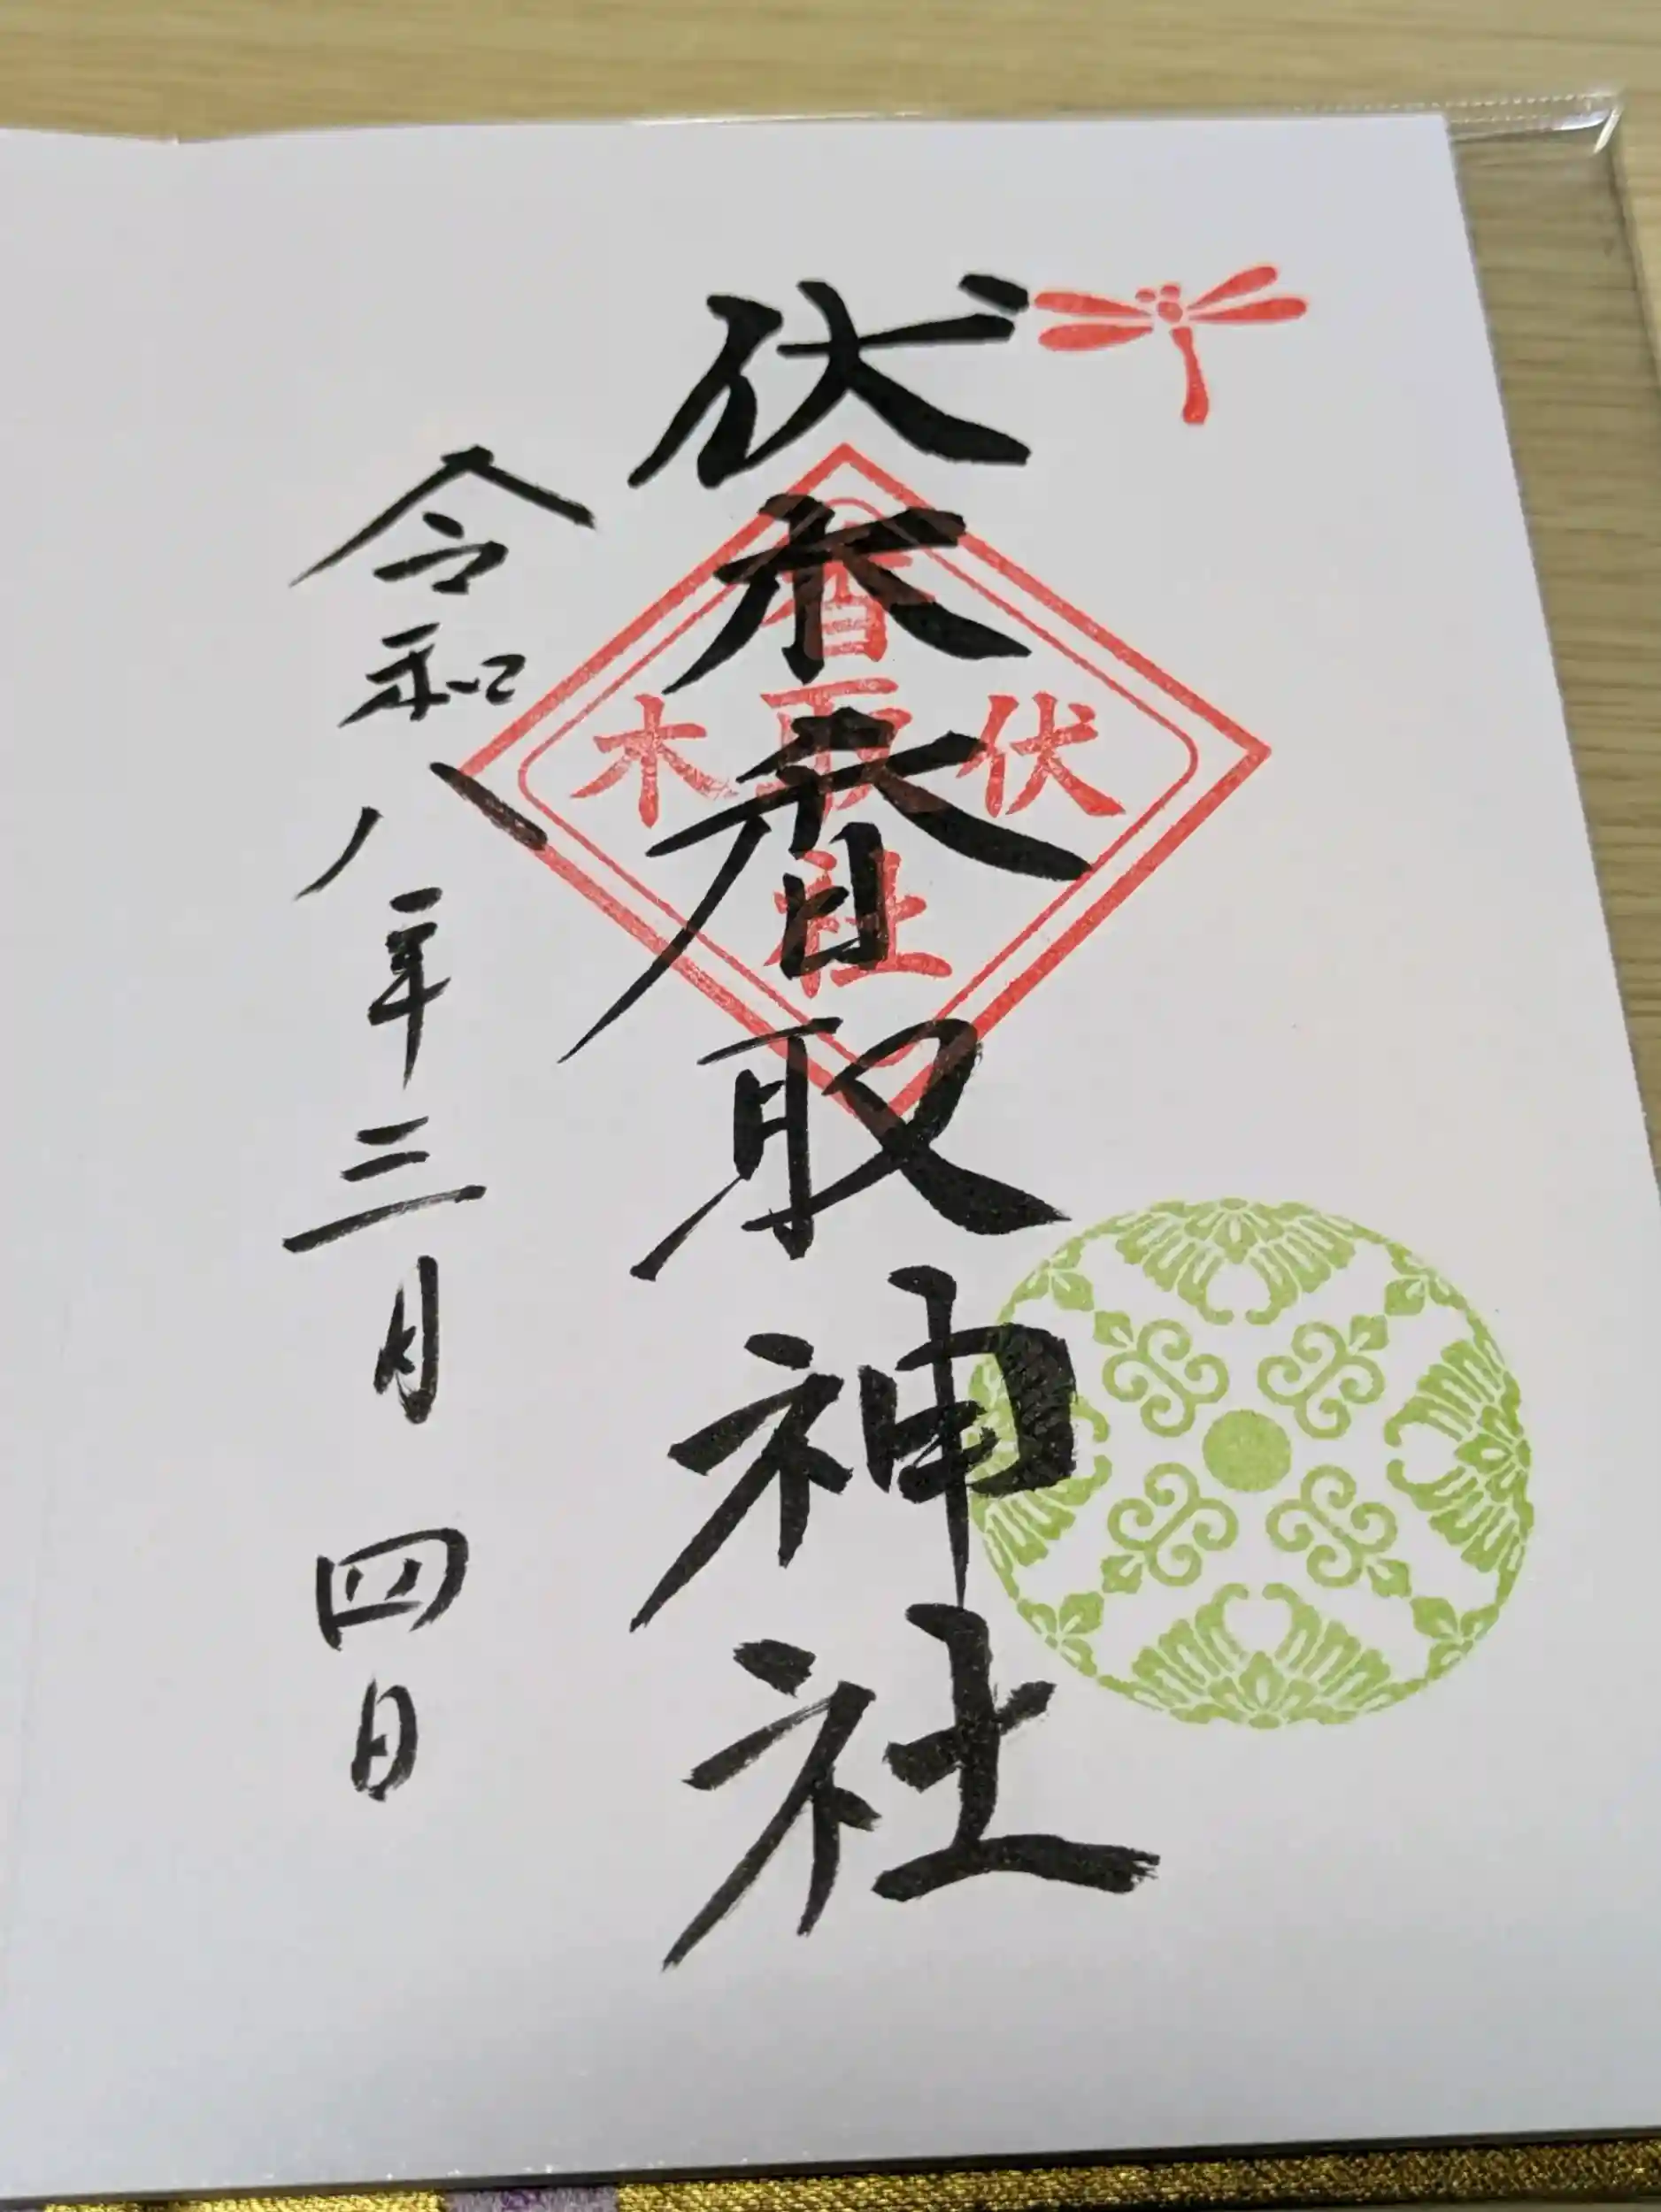 伏木香取神社
令和八年三月四日
伏木
香取社